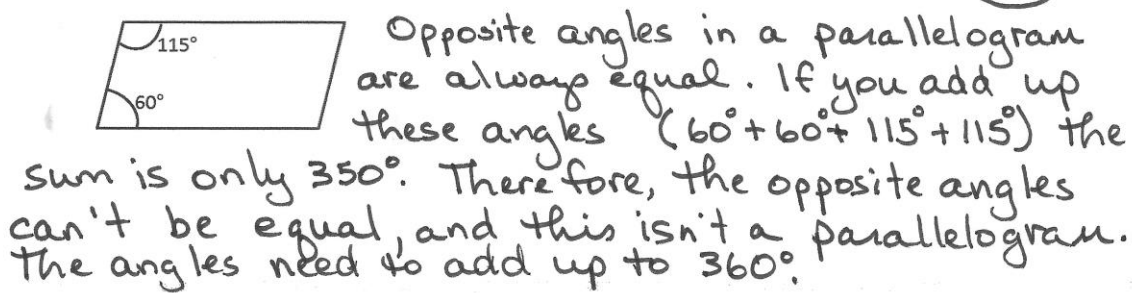 115°
60°
Opposite angles in a parallelogram
are always equal. If you add up
these angles (60°+60°+ 115°+115°) the
sum is only 350°. Therefore, the opposite angles
can't be equal, and this isn't a parallelogram.
The angles need to add up to 360°.